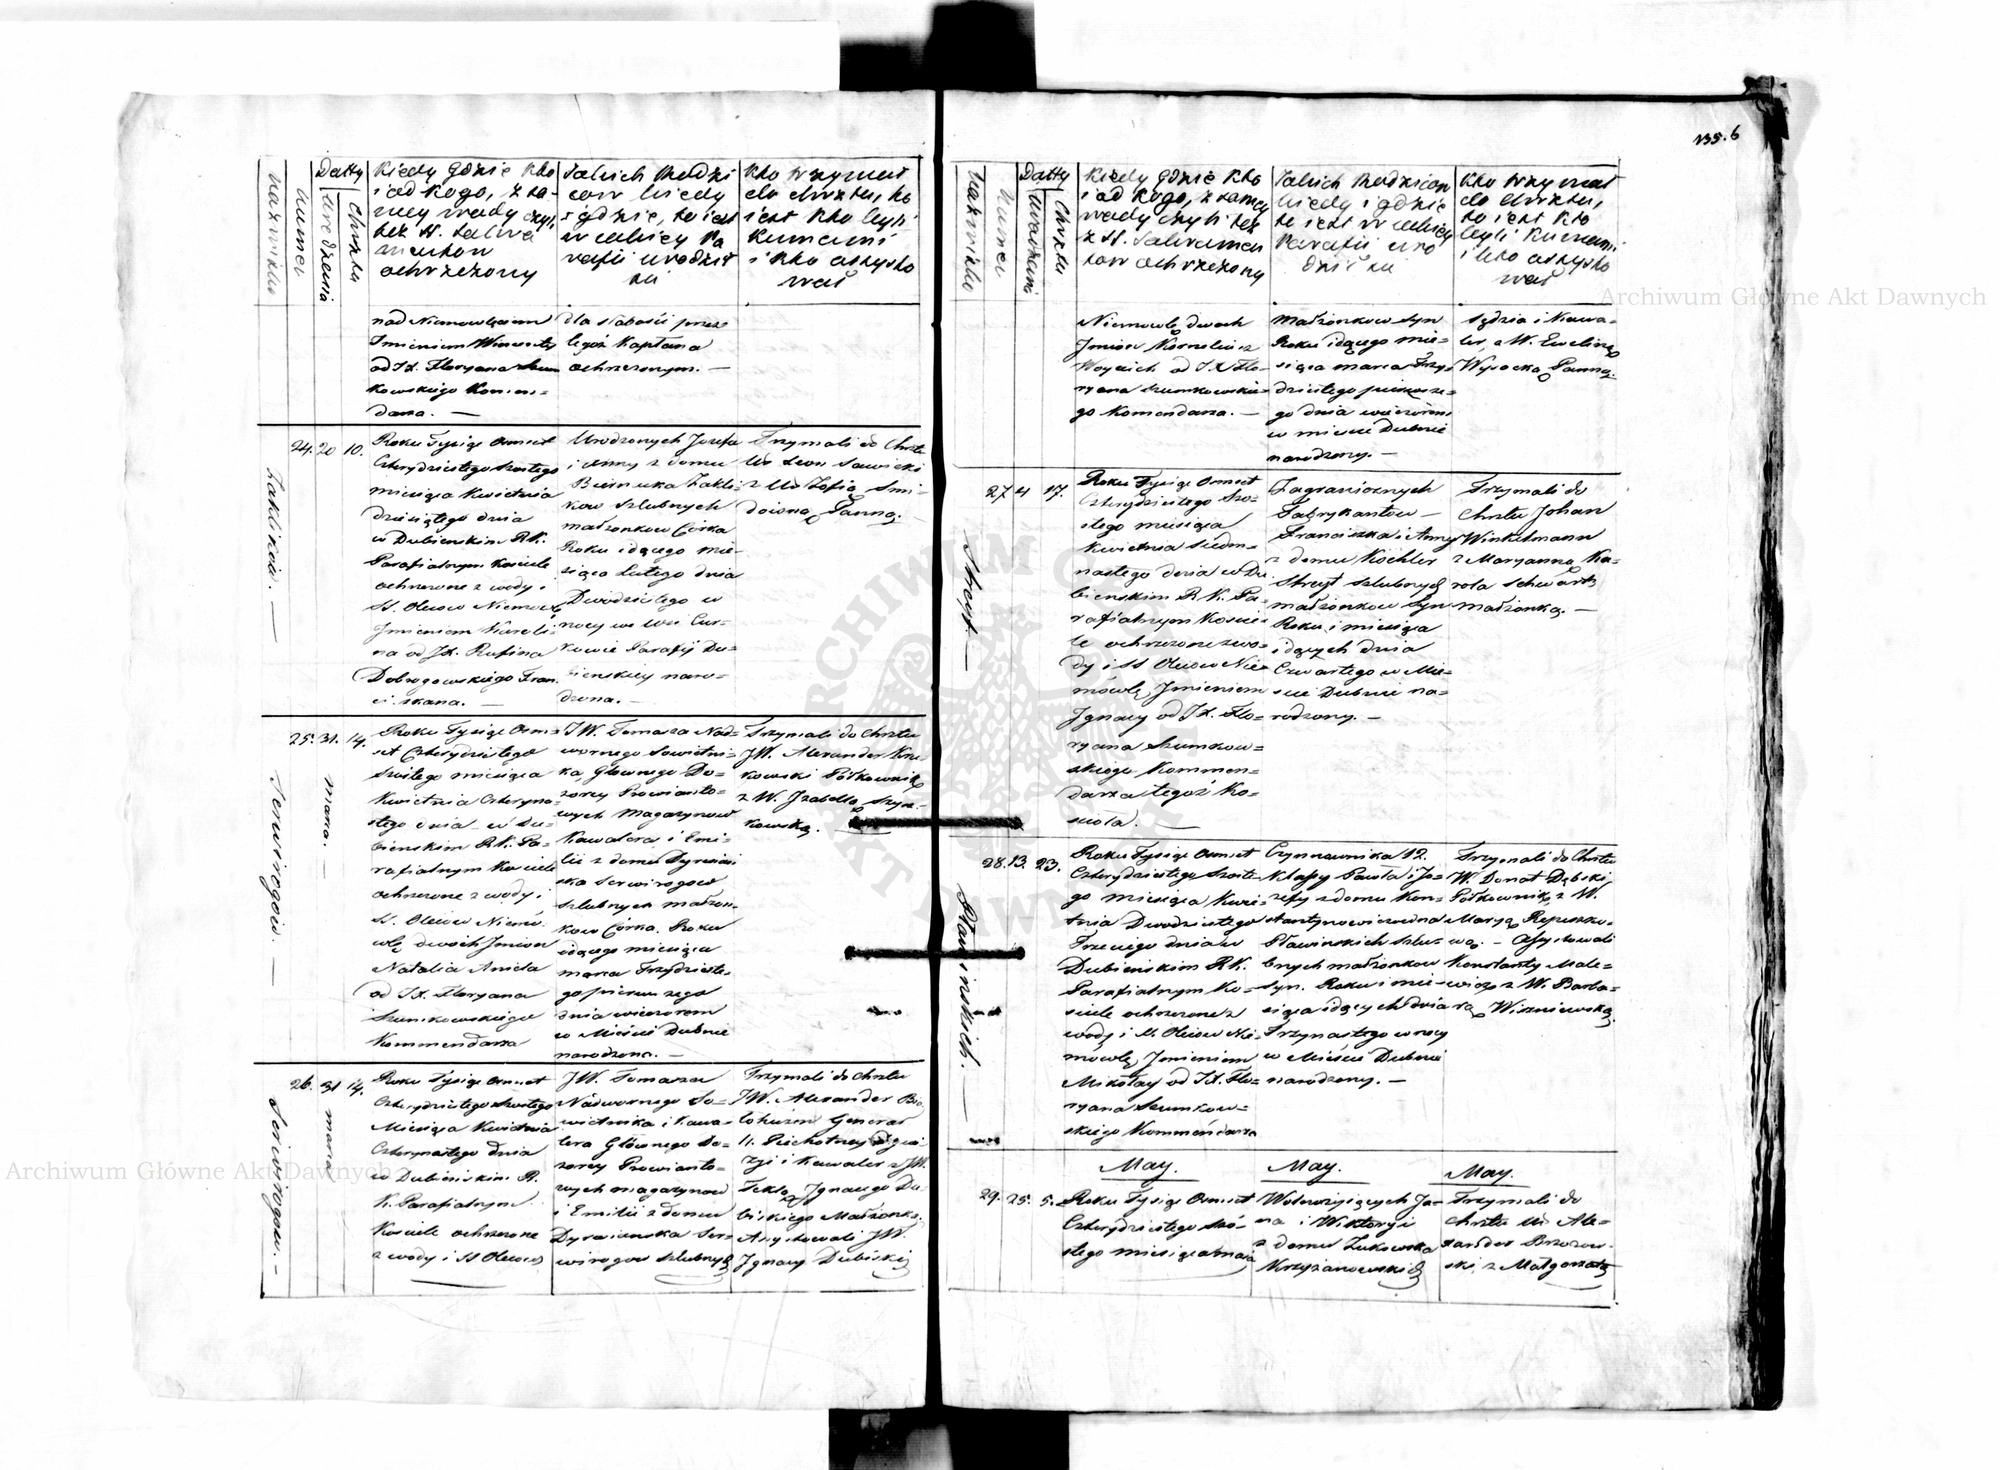 135. 6
Nazwisko
Numer
Datty
Urodzenia
Chrztu
Kiedy gdzie kto
i od kogo, z sa-
mey wody czyli
bez SS. Sakra
mentow
ochrzczony
Jakich Rodzi
cow kiedy
i gdzie, to iest
w jakiey Pa
rafii urodził
się
Kto trzymał
do chrztu, to
iest kto byli
Kumami
i kto assysto
wał
nad Niemowlęciem
Imieniem
od JX. Floryana Szum
kowskiego Komen-
darza. —
dla słabości przez
tegoż Kapłana
ochrzczonym. —
Zaklikow. —
24. 20 10.
Roku Tysiąc Osmset
Czterydziestego szostego
miesiąca Kwietnia
dziesiątego dnia
w Dubienskim R.K.
Parafialnym Kosciele
ochrzczone z wody i
SS. Olejow Niemowle
Imieniem Karoli-
na od JX. Rufina
Dobrogowskiego Fran
ciszkana. —
Urodzonych Jozefa
i Anny z domu
Biernacka Zakli-
kow Szlubnych
małżonkow Córka
Roku idącego mie-
siąca Lutego dnia
Dwudziestego w
nocy we wsi Tur-
kowie Parafij Du-
bienskiey naro-
dzona. —
Trzymali do Chrztu
Ur. Leon Sawicki
z Ur. Zofią Smi-
doiną Panną.
Serwirogow. —
25. 31. 14.
marca. —
Roku Tysiąc Osm-
set Czterydziestego
Szostego miesiąca
Kwietnia Czterna-
stego dnia w Du-
bienskim R.K. Pa-
rafialnym Kosciele
ochrzczone z wody i
SS. Olejow Niemo-
wle dwoch Imion
Natalia Aniela
od JX. Floryana
Szumkowskiego
Kommendarza
JW. Tomasza Nad-
wornego Sowietni-
ka Głownego Do-
zorcy Prowianto-
wych Magazynow
Kawalera i Emi-
lii z domu
Serwirogow
Szlubnych małżon-
kow Córka. Roku
idącego miesiąca
marca Trzydzieste-
go pierwszego
dnia wieczorem
w Mieście Dubnie
narodzona. —
Trzymali do Chrztu
JW. Alexander
kowski Półkownik
z W. Izabellą
kowską.
Serwirogow. —
26. 31 14.
marca
Roku Tysiąc Osmset
Czterydziestego szostego
Miesiąca Kwietnia
Czternastego dnia
w Dubieńskim R.
K. Parafialnym
Kosciele ochrzczone
z wody i SS Olejow
JW. Tomasza
Nadwornego So-
wietnika i Kawa-
lera Głównego Do-
zorcy Prowianto-
wych magazynow
i Emilii z domu
Ser-
wirogow szlubnych
Trzymali do Chrztu
JW. Alexander
General
11. Piechotney
zyi i Kawaler z JW.
Teklą Ignacego Du-
bińskiego Małżonką
Assystowali JW.
Ignacy Dubiński
Nazwisko
Numer
Datty
Urodzenia
Chrztu
Kiedy gdzie kto
i od kogo, z samey
wody czyli też
z SS. Sakramen
tow ochrzczony
Jakich Rodzicow
kiedy i gdzie
to iest w jakiey
Parafii uro
dził się
Kto trzymał
do chrztu,
to iest kto
byli Kumami
i kto assysto
wał
Niemowle dwoch
Imion Korneliusz
Woyciech od JX Flo-
ryana Szumkowskie-
go Komendarza. —
Małżonkow syn
Roku idącego mie-
siąca marca Trzy-
dziestego pierwsze-
go dnia wieczorem
w miescie Dubnie
narodzony. —
Sędzia i Kawa-
ler, z W. Eweliną
Wysocką Panną.
Streyt. —
27 4 17.
Roku Tysiąc Osmset
Czterydziestego Szo-
stego miesiąca
Kwietnia siedm-
nastego dnia w Du-
bienskim R.K. Pa-
rafialnym Koscie-
le ochrzczone z wo-
dy i SS Olejow Nie-
mówle Imieniem
Ignacy od JX. Flo-
ryana Szumkow-
skiego Kommen-
darza tegoż Ko-
scioła. —
Zagranicznych
Fabrykantow —
Franciszka i Anny
z domu Köchler
Streyt szlubnych
małżonkow Syn
Roku i miesiąca
idących dnia
Czwartego w Mie-
scie Dubnie na-
rodzony. —
Trzymali do
Chrztu Johan
Winkelmann
z Maryanną Ka-
rola Schwartz
małżonką. —
Pławinskich. —
28. 13. 23.
Roku Tysiąc Osmset
Czterydziestego Szoste-
go miesiąca Kwie-
tnia Dwudziestego
Trzeciego dnia w
Dubieńskim R.K.
Parafialnym Ko-
sciele ochrzczone z
wody i SS. Olejow Nie-
mówle Imieniem
Mikołay od JX. Flo-
ryana Szumkow-
skiego Kommendarza
Czynnownika 12.
Klassy Pawła i Jo-
zefy z domu Kon-
stantynowiczowna
Pławinskich szlu-
bnych małżonkow
Syn. Roku i mie-
siąca idących dnia
Trzynastego w nocy
w Mieście Dubnie
narodzony. —
Trzymali do Chrztu
W. Donat Dębski
Półkownik, z W.
Maryą
wą. — Assystowali
Konstanty Male-
wicz z W. Barba-
rą Wiszniewską
May.
May.
May.
29. 25. 5.
Roku Tysiąc Osmset
Czterydziestego Szó-
stego miesiąca maja
Ja-
na i Wiktoryi
z domu Żukowska
Krzyżanowskich
Trzymali do
chrztu Ur. Ale-
xander Brzozow-
ski z Małgorzatą
Archiwum Główne Akt Dawnych
Archiwum Główne Akt Dawnych